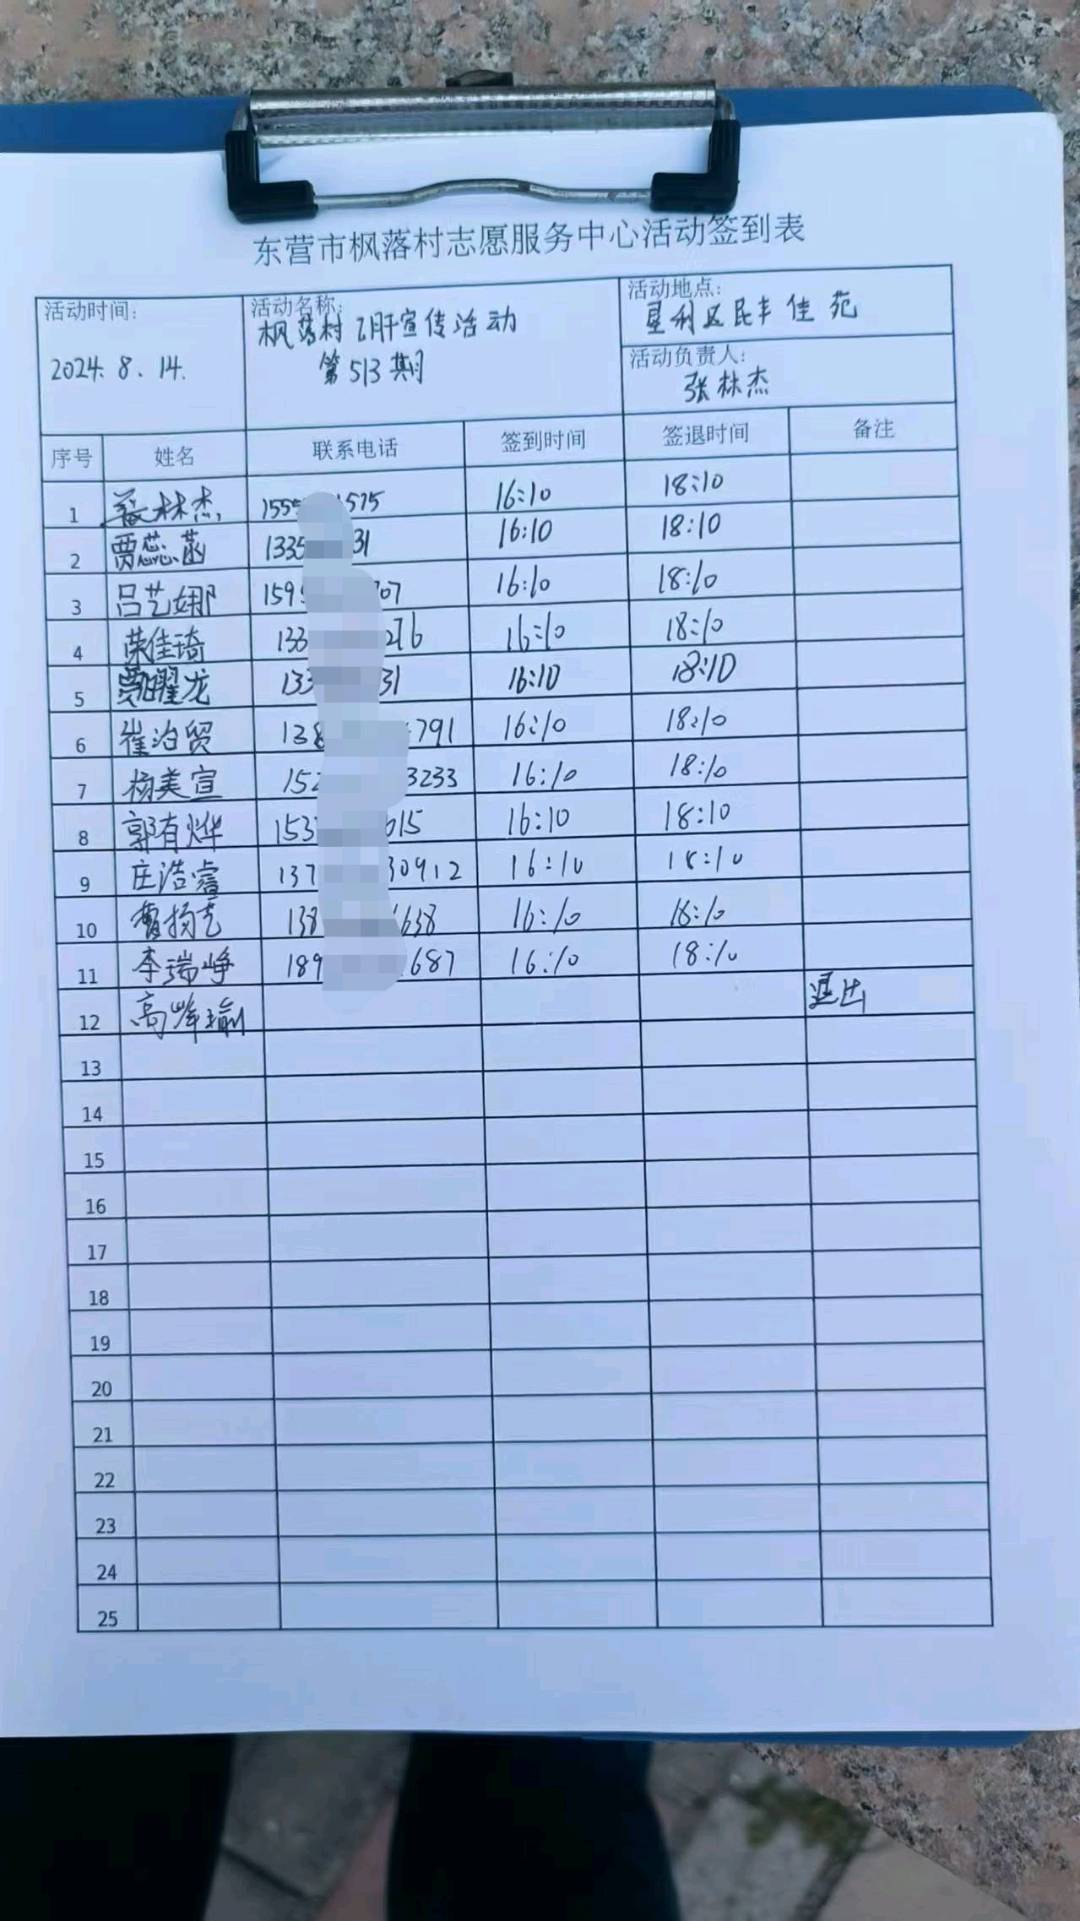 东营市枫落村志愿服务中心活动签到表
活动时间: 2024.8.14.
活动名称: 枫落村乙肝宣传活动
第513期
活动地点: 垦利区民丰佳苑
活动负责人: 张林杰
序号 姓名 联系电话 签到时间 签退时间 备注
1 张林杰 1555 1575 16:10 18:10
2 贾蕊菡 1335 31 16:10 18:10
3 吕艺娜 159 707 16:10 18:10
4 荣佳琦 133 276 16:10 18:10
5 贾曜龙 133 31 16:10 18:10
6 崔治贸 138 791 16:10 18:10
7 杨美宣 152 3233 16:10 18:10
8 郭有烨 153 015 16:10 18:10
9 庄浩睿 137 30912 16:10 18:10
10 曹扬 138 638 16:10 18:10
11 李瑞峥 189 687 16:10 18:10
12 高峰瑜 退出
13
14
15
16
17
18
19
20
21
22
23
24
25